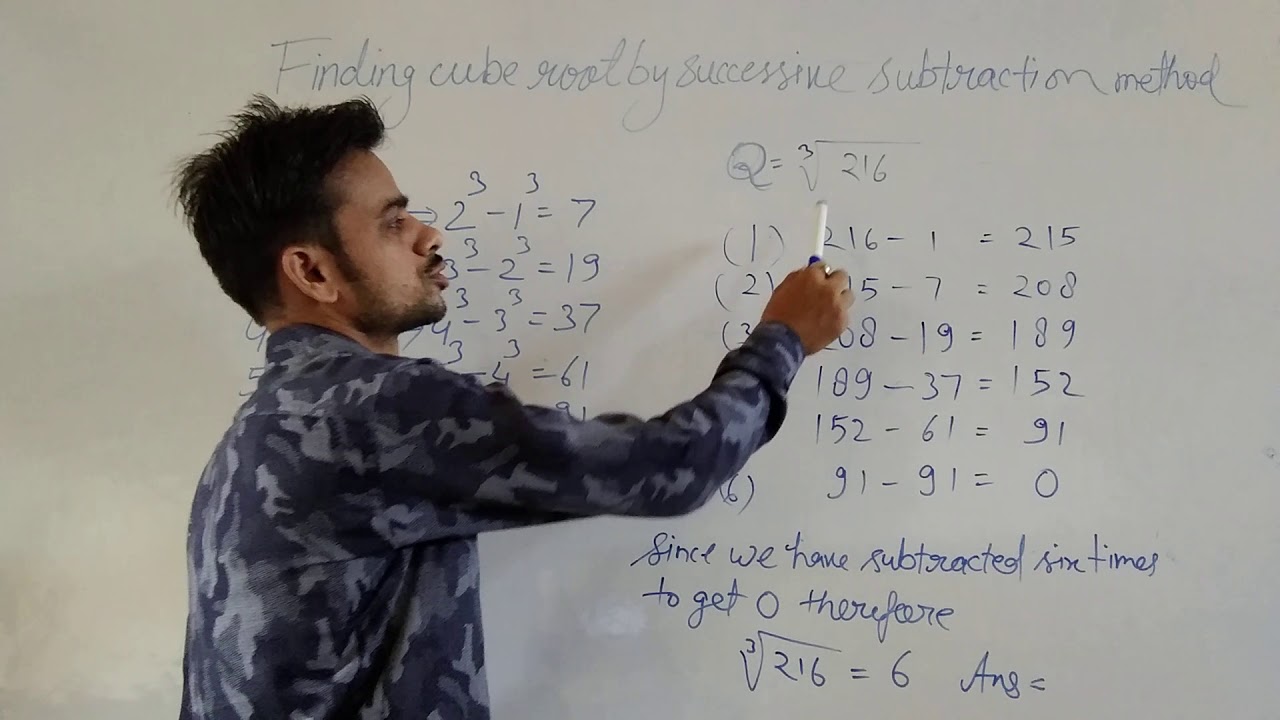 Finding cube root by successive subtraction method
⇒ 2³ - 1³ = 7
3³ - 2³ = 19
4³ - 3³ = 37
³ - 4³ = 61
91
Q = ∛216
(1) 216 - 1 = 215
(2) 15 - 7 = 208
(3 08 - 19 = 189
189 - 37 = 152
152 - 61 = 91
(6) 91 - 91 = 0
Since we have subtracted six times
to get 0 therefore
∛216 = 6 Ans =